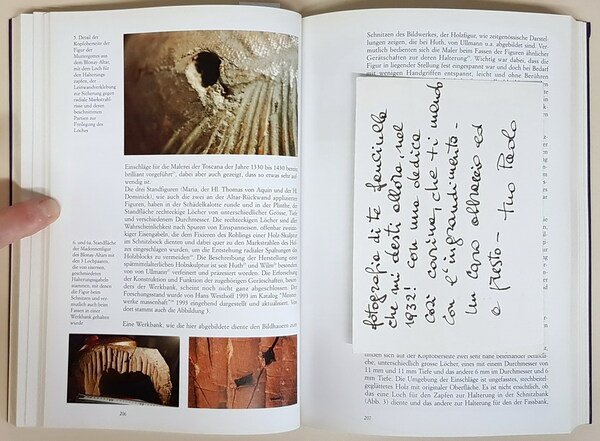 5. Detail der
Kopfoberseite der
Figur der
Muttergottes aus
dem Blonay-Altar,
mit dem Loch für
den Halterungs
zapfen, der
Leinwandverklebung
zur Sicherung gegen
radiale Markstrahl-
risse und deren
beschnittenen
Partien zur
Freilegung des
Loches
Einschläge für die Malerei der Toscana der Jahre 1330 bis 1430 bereits
brillant vorgeführt, dabei aber auch gezeigt, dass so etwas sehr auf
wendig ist.
Die drei Standfiguren (Maria, der Hl. Thomas von Aquin und der Hl.
Dominik), wie auch die zwei an der Altar-Rückwand applizierten
Figuren, haben in der Schädelkalotte runde und in der Plinthe, der
Standfläche rechteckige Löcher von unterschiedlicher Grösse, Tiefe
und verschiedenem Durchmesser. Die rechteckigen Löcher sind der
Wahrscheinlichkeit nach Spuren von Einspanneisen, offenbar zweizin-
kiger Eisengabeln, die dem Fixieren des Rohlings einer Holz-Skulptur
im Schnitzbock dienten und dabei quer zu den Markstrahlen des Hol-
zes eingeschlagen wurden, um die Entstehung radialer Spaltungen des
Holzblocks zu vermeiden. Die Beschreibung der Herstellung einer
spätmittelalterlichen Holzskulptur ist seit Huth und Wilm besonders
von von Ullmann verfeinert und präzisiert worden. Die Erforschung
der Konstruktion und Funktion der zugehörigen Geräte, beson-
ders der Werkbank, scheint noch nicht ganz abgeschlossen. Der
Forschungsstand wurde von Hans Westhoff 1993 im Katalog "Meister-
werke massenhaft" 1993 eingehend dargestellt und aktualisiert. Von
dort stammt auch die Abbildung 3.
Eine Werkbank, wie die hier abgebildete diente den Bildhauern zum
6. und 6a. Standfläche
der Madonnenfigur
des Blonay-Altars mit
den 3 Lochpaaren,
die von eisernen,
geschmiedeten
Halterungsgabeln
stammen, mit denen
die Figur beim
Schnitzen und ver-
mutlich auch beim
Fassen in einer
Werkbank gehalten
wurde
206
Schnitzen des Bildwerkes, der Holzfigur, wie zeitgenössische Darstel-
lungen zeigen, die bei Huth, von Ullmann u.a. abgebildet sind. Ver-
mutlich bedienten sich die Maler beim Fassen der Figuren ähnlicher
Gerätschaften zur deren Halterung. Wichtig war dabei, dass die
Figur in liegender Stellung fest eingespannt war und doch bei Bedarf
mit wenigen Handgriffen entspannt, leicht und ohne Berühren
fotografia di te fanciulla
che mi desti allora, nel
1932! con una dedica
così carina, che ti mando
con l'ingrandimento -
Un caro abbraccio ed
a presto - tuo Paolo
finden sich auf der Kopfoberseite zwei sehr nahe beieinander befindli-
che, unterschiedlich grosse Löcher, eines mit einem Durchmesser von
11 mm und 11 mm Tiefe und das andere 6 mm im Durchmesser und 6
mm Tiefe. Die Umgebung der Einschläge ist ungefasstes, stechbeitel-
geglättetes Holz der Skulptur. Es ist nicht ersichtlich, ob
das eine Loch für den Zapfen zur Halterung in der Schnitzbank
(Abb. 3) diente und das andere zur Halterung für den Fassbank,
207